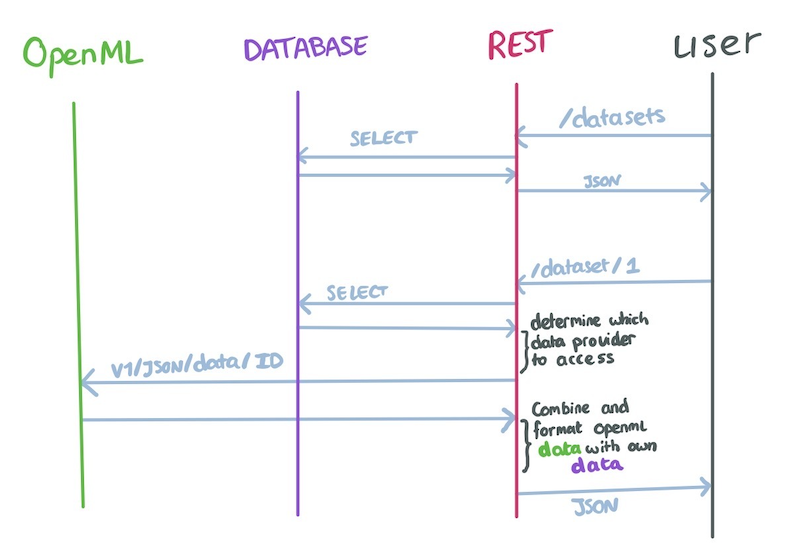 OpenML
DATABASE
REST
user
/datasets
SELECT
JSON
/dataset/1
SELECT
determine which
data provider
to access
V1/JSON/data/ID
Combine and
format openml
data with own
data
JSON